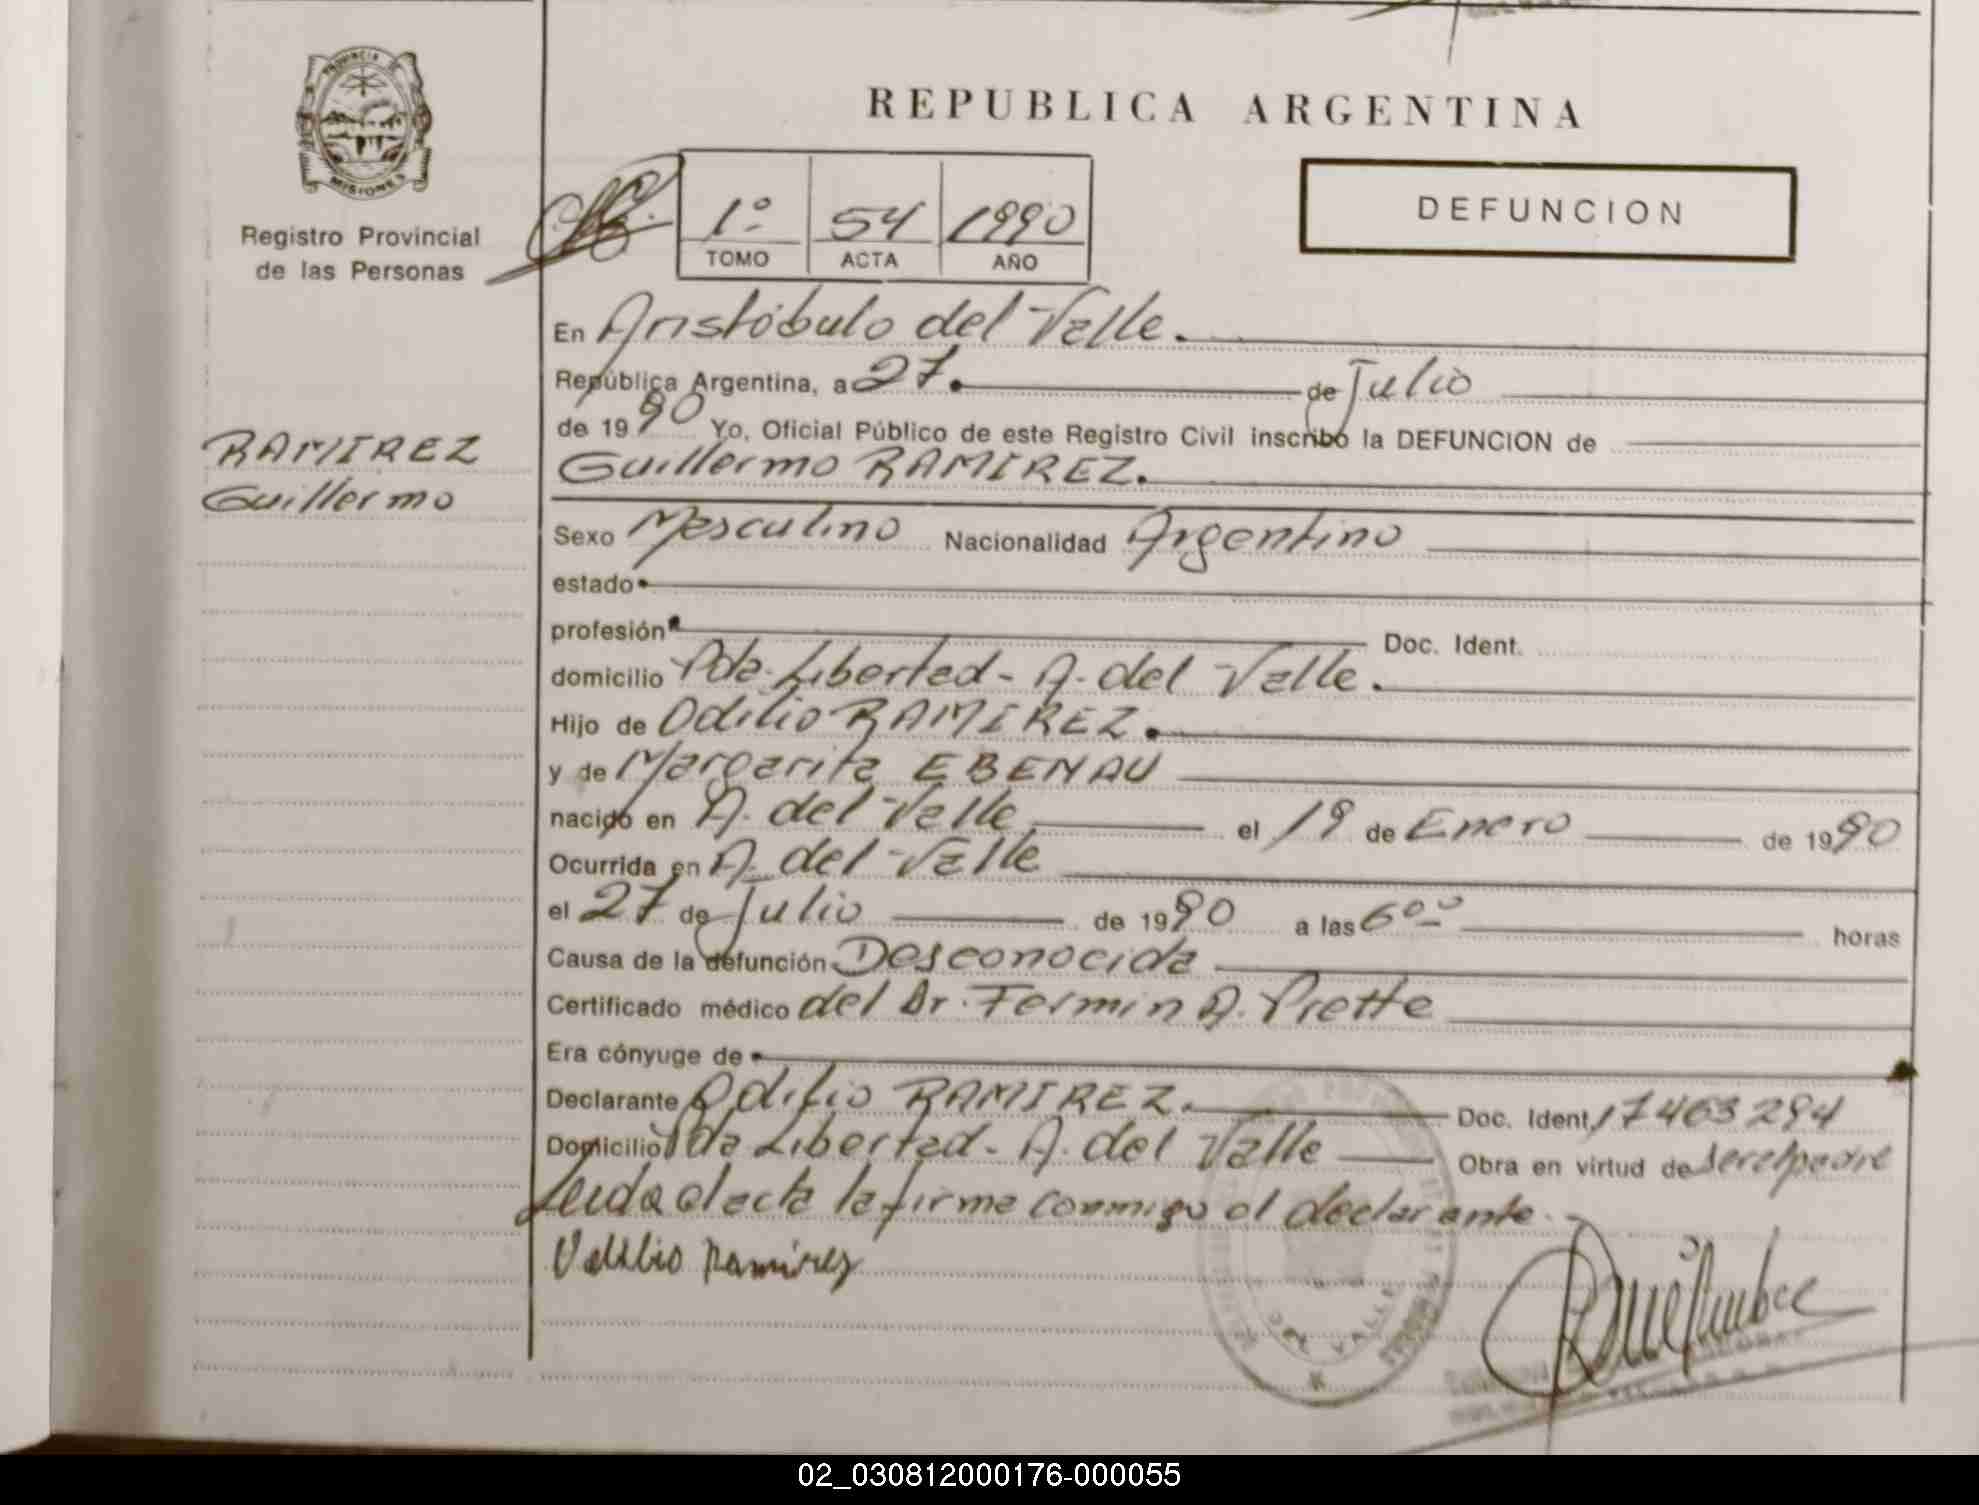 PROVINCIA DE
MISIONES
Registro Provincial
de las Personas
REPUBLICA ARGENTINA
1º 54 1990
TOMO ACTA AÑO
DEFUNCION
En Aristóbulo del Valle.
República Argentina, a 27. de Julio
de 1990 Yo, Oficial Público de este Registro Civil inscribo la DEFUNCION de
Guillermo RAMIREZ.
RAMIREZ
Guillermo
Sexo Masculino Nacionalidad Argentino
estado
profesión Doc. Ident.
domicilio Pda. Libertad - A. del Valle.
Hijo de Odilio RAMIREZ.
y de Margarita EBENAU
nacido en A. del Valle el 19 de Enero de 1990
Ocurrida en A. del Valle
el 27 de Julio de 1990 a las 6º° horas
Causa de la defunción Desconocida
Certificado médico del Dr. Fermin A. Piette
Era cónyuge de
Declarante Odilio RAMIREZ. Doc. Ident. 17463294
Domicilio Pda Libertad - A. del Valle Obra en virtud de ser el padre
Leida el acta la firma conmigo el declarante.
Ramirez
DEL VALLE
02_030812000176-000055